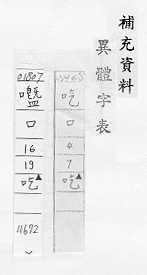 補充資料
異體字表
吃
口
4
7
吃▲
01807
口
16
19
吃▲
4692